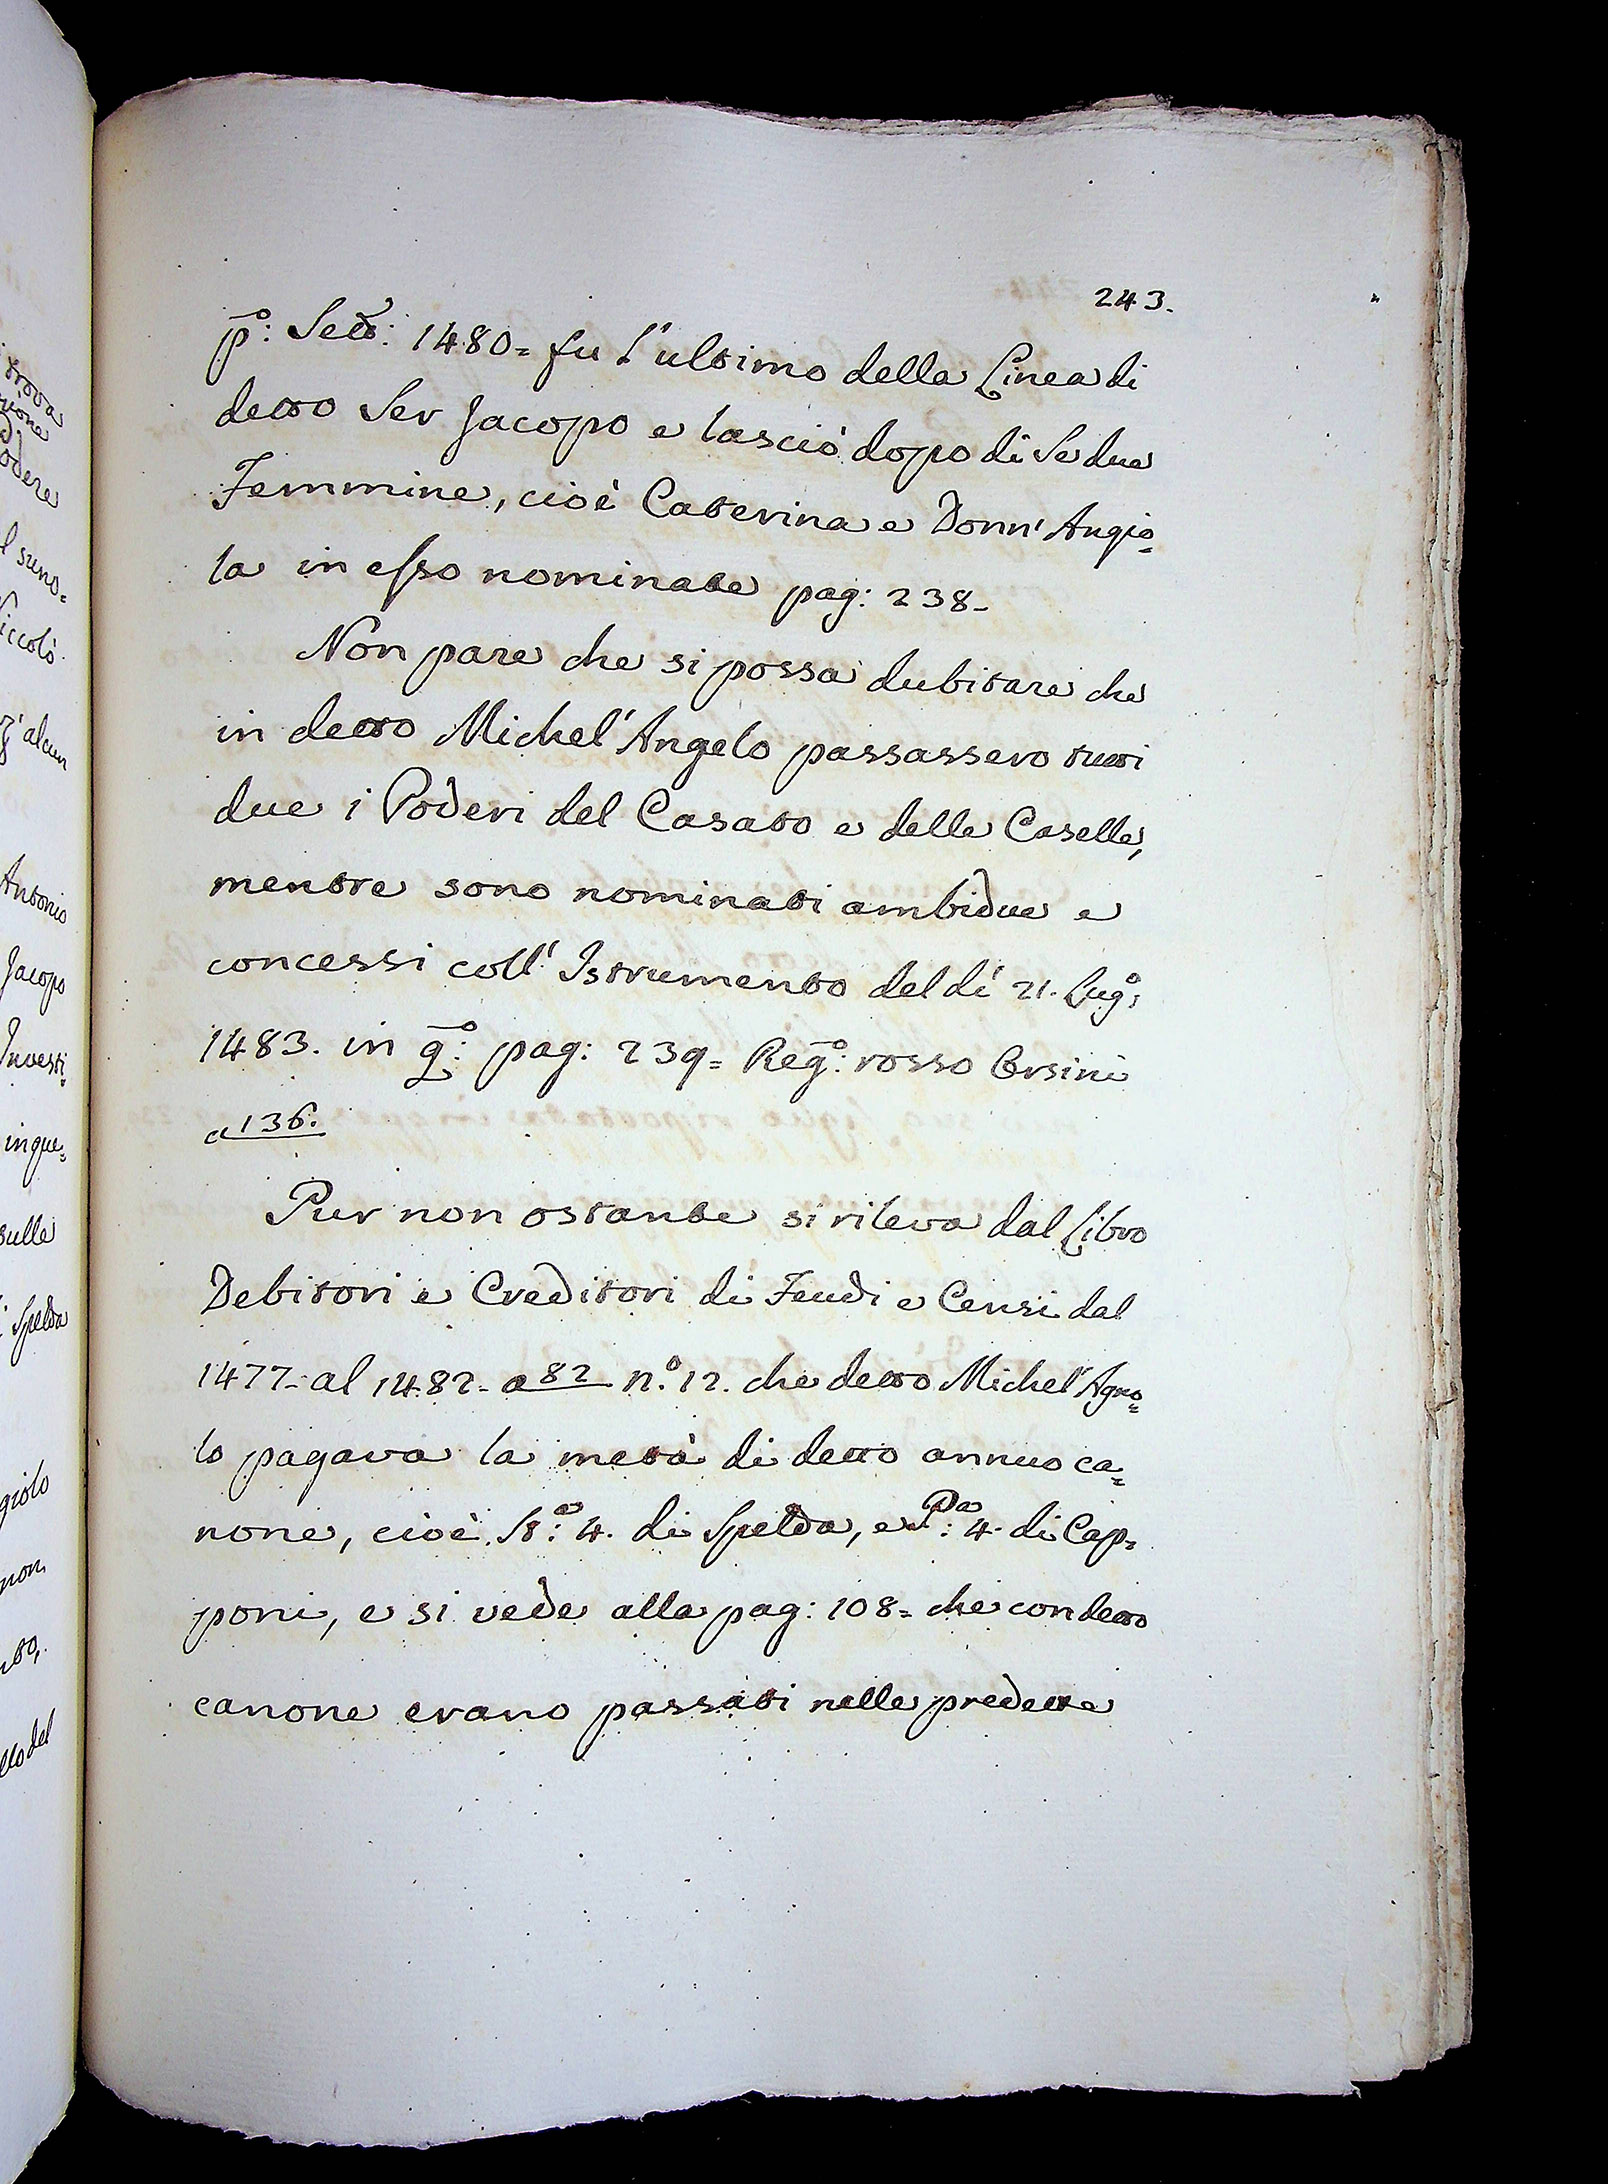 243.
p̄o: Sett: 1480= fu l'ultimo della Linea di
detto Ser Jacopo e lasciò dopo di Se due
Femmine, cioè Caterina e Donn' Angio=
la in esso nominate pag: 238-
Non pare che si possa dubitare che
in detto Michel'Angelo passassero tutti
due i Poderi del Casato e delle Caselle,
mentre sono nominati ambidue e
concessi coll' Istrumento del dì 21. Lugo:
1483. in qo: pag: 239= Rego: rosso Orsini
a 136.
Pur non ostante si rileva dal Libro
Debitori e Creditori di Feudi e Censi dal
1477- al 1482- a 82 n.o 12. che detto Michel'Agno=
lo pagava la metà di detto annuo ca=
none, cioè Sa: 4. di Spelda, e Pa: 4. di Cap=
poni, e si vede alla pag: 108= che con detto
canone erano passati nelle predette
trova
odere
l suno=
iccolò
alcun
Antonio
Jacopo
Investi=
inque=
sulle
i Spelda
giolo
non
llo del